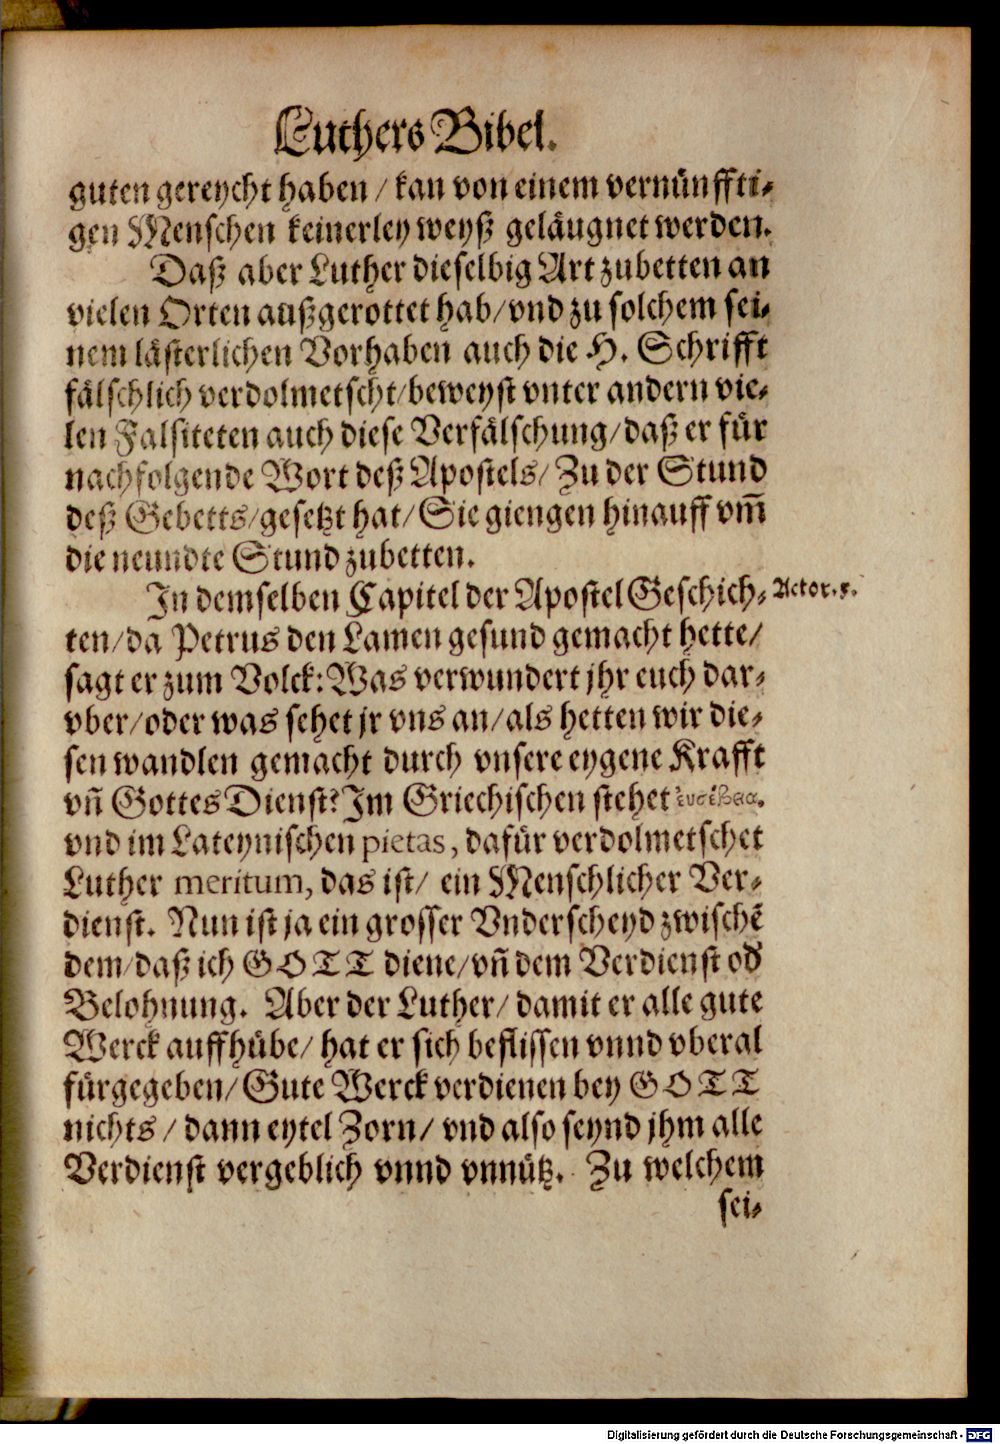 Luthers Bibel.
guten gereycht haben / kan von einem vernünffti-
gen Menschen keinerley weyß geläugnet werden.
Daß aber Luther dieselbig Art zubetten an
vielen Orten außgerottet hab/vnd zu solchem sei-
nem lästerlichen Vorhaben auch die H. Schrifft
fälschlich verdolmetscht/beweyst vnter andern vie-
len Falsiteten auch diese Verfälschung/daß er für
nachfolgende Wort deß Apostels/ Zu der Stund
deß Gebetts/gesetzt hat/ Sie giengen hinauff vm̃
die neundte Stund zubetten.
In demselben Capitel der Apostel Geschich- Actor.
ten/da Petrus den Lamen gesund gemacht hette/
sagt er zum Volck: Was verwundert jhr euch dar-
vber/oder was sehet jr vns an/als hetten wir die-
sen wandlen gemacht durch vnsere eygene Krafft
vñ Gottes Dienst? Im Griechischen stehet
vnd im Lateynischen pietas, dafür verdolmetschet
Luther meritum, das ist/ ein Menschlicher Ver-
dienst. Nun ist ja ein grosser Vnderscheyd zwischẽ
dem/daß ich GOTT diene/vñ dem Verdienst od'
Belohnung. Aber der Luther/ damit er alle gute
Werck auffhübe/ hat er sich beflissen vnnd vberal
fürgegeben/ Gute Werck verdienen bey GOTT
nichts / dann eytel Zorn/ vnd also seynd jhm alle
Verdienst vergeblich vnnd vnnütz. Zu welchem
sei-
Digitalisierung gefördert durch die Deutsche Forschungsgemeinschaft - DFG